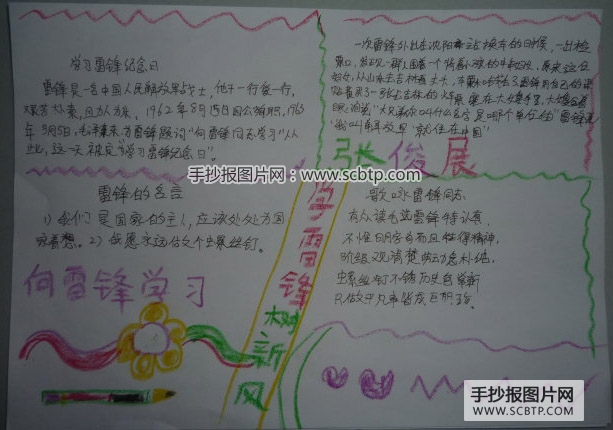 学习雷锋纪念日
雷锋是一名中国人民解放军战士，他干一行爱一行，
艰苦朴素，且力人为乐。1962年8月15日因公殉职，1963
年3月5日，毛泽东为雷锋题词"向雷锋同志学习"从
此，这一天被定"学习雷锋纪念日"。
一次雷锋外出在沈阳车站换车的时候，一出检
票口，发现一群人围着一个背着小孩的中年妇女，原来这位
妇女，从山东去吉林看丈夫，
着买了一张去吉林的火车票塞在大嫂手里，大嫂含着
眼泪说："大兄弟你叫什么名字是哪个单位的"雷锋道
"我叫解放军 就住在中国"
张俊展
手抄报图片网：www.scbtp.com
雷锋的名言
1）我们是国家的主人，应该处处为国
家着想。2）我愿永远做个螺丝钉。
向雷锋学习
学雷锋树新风
歌咏雷锋同志
有人读毛选雷锋特认真
不惟明字句而且得精神，
阶级观清楚劳动意朴纯，
螺丝钉不锈历史色常新
只做平凡事皆成巨
手抄报图片网
WWW.SCBTP.COM